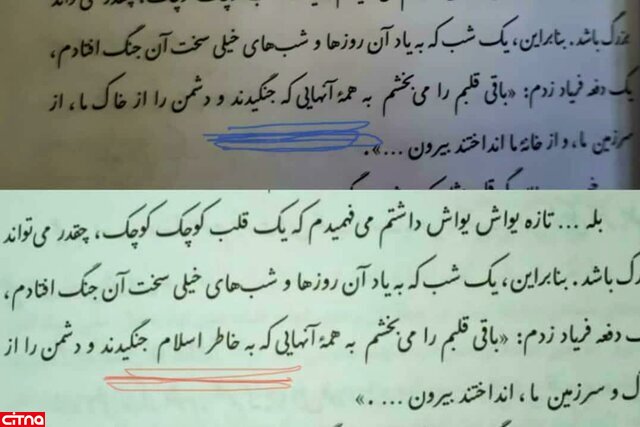 بزرگ باشد. بنابراین، یک شب که به یاد آن روزها و شب‌های خیلی سخت آن جنگ افتادم،
یک دفعه فریاد زدم: «باقی قلبم را می‌بخشم به همهٔ آنهایی که جنگیدند و دشمن را از خاک ما، از
سرزمین ما، و از خانهٔ ما انداختند بیرون ...».
بله ... تازه یواش یواش داشتم می‌فهمیدم که یک قلب کوچک کوچک، چقدر می‌تواند
رگ باشد. بنابراین، یک شب که به یاد آن روزها و شب‌های خیلی سخت آن جنگ افتادم،
ک دفعه فریاد زدم: «باقی قلبم را می‌بخشم به همهٔ آنهایی که به خاطر اسلام جنگیدند و دشمن را از
ک و سرزمین ما، انداختند بیرون ... .»
citna